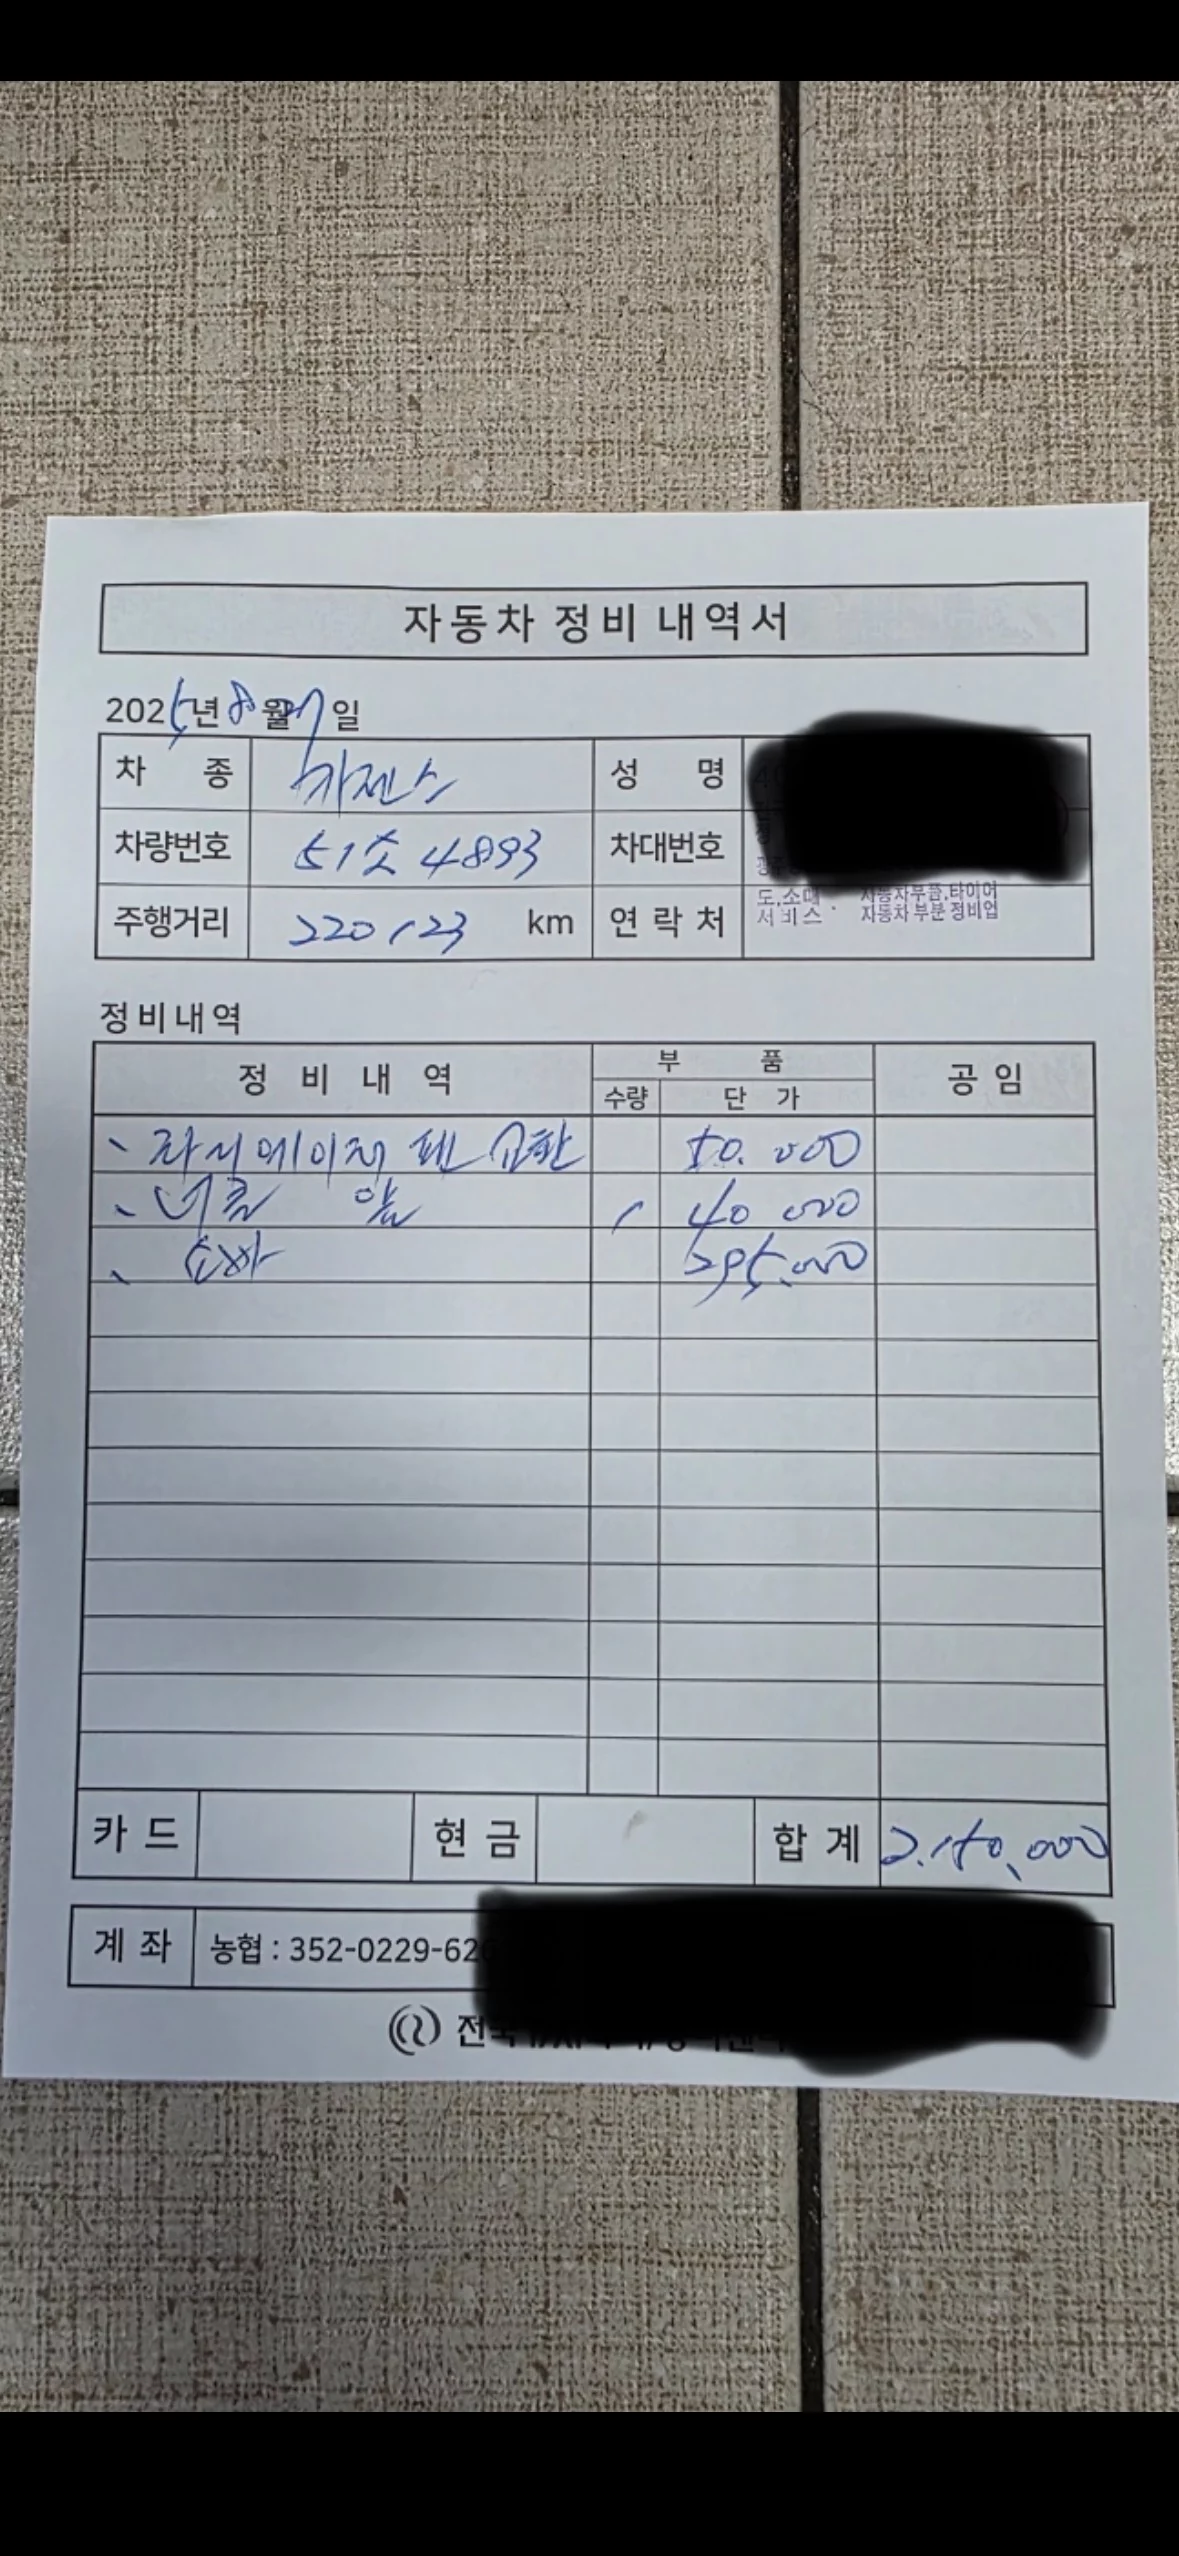 자동차 정비 내역서
2025년 8월 27일
차 종 카젠스 성 명
차량번호 51소 4893 차대번호
주행거리 220,123 km 연 락 처
도,소매 자동차부품,타이어
서비스 자동차 부분 정비업
정비내역
정 비 내 역 부 품 공 임
수량 단 가
라지에이터 팬 교환 50.000
너클 앞 1 40 000
쇼바 295.000
카 드 현 금 합 계 2.150.000
계 좌 농협 : 352-0229-62